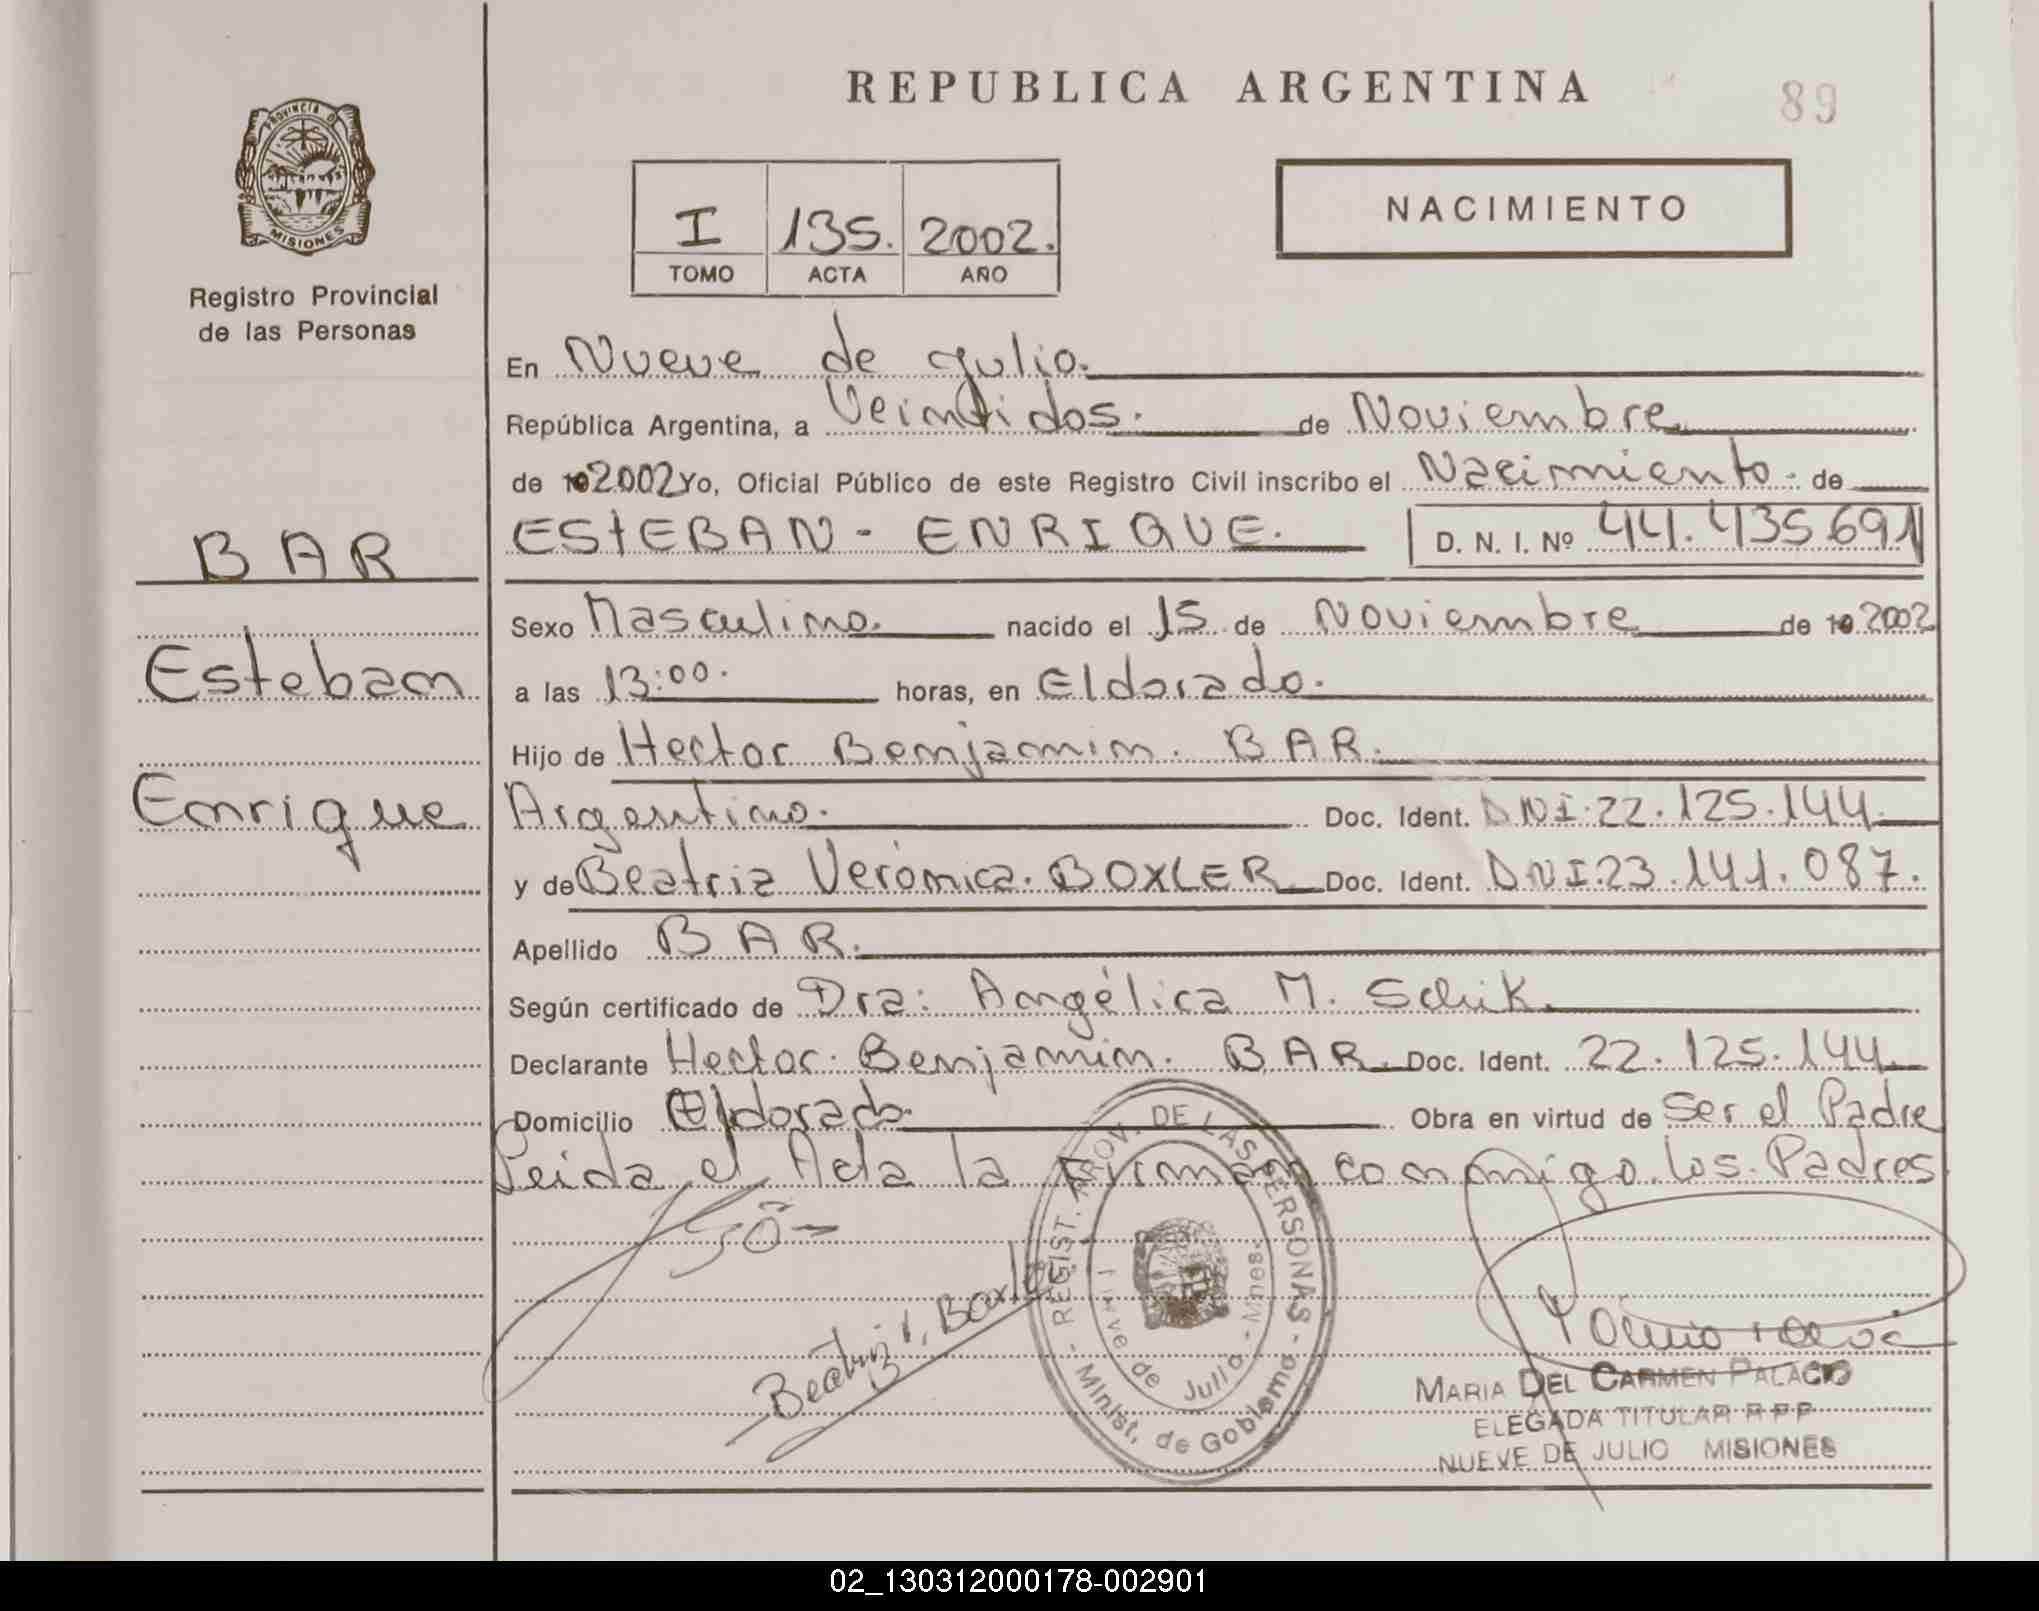 REPUBLICA ARGENTINA
89
PROVINCIA D
MISIONES
Registro Provincial
de las Personas
I 135. 2002.
TOMO ACTA AÑO
NACIMIENTO
En Nueve de Julio.
República Argentina, a Veintidos. de Noviembre
de 2002 Yo, Oficial Público de este Registro Civil inscribo el Nacimiento. de
BAR
ESTEBAN - ENRIQUE. D. N. I. Nº 44.435.691
Sexo Masculino. nacido el 15 de Noviembre de 2002
Esteban
a las 13:00. horas, en Eldorado.
Hijo de Hector Benjamin. BAR.
Enrique
Argentino. Doc. Ident. DNI.22.125.144.
y de Beatriz Verónica. BOXLER Doc. Ident. DNI.23.141.087.
Apellido BAR.
Según certificado de Dra: Angélica M. Schik.
Declarante Hector. Benjamin. BAR. Doc. Ident. 22.125.144
Domicilio Eldorado. Obra en virtud de Ser el Padre
Leida el Acta la Firman conmigo los Padres
Beatriz V. Boxler
REGIST. PROV. DE LAS PERSONAS - Minist. de Gobierno -
Nueve de Julio - Mnes.
MARIA DEL CARMEN PALACIO
ELEGADA TITULAR R P P
NUEVE DE JULIO MISIONES
02_130312000178-002901